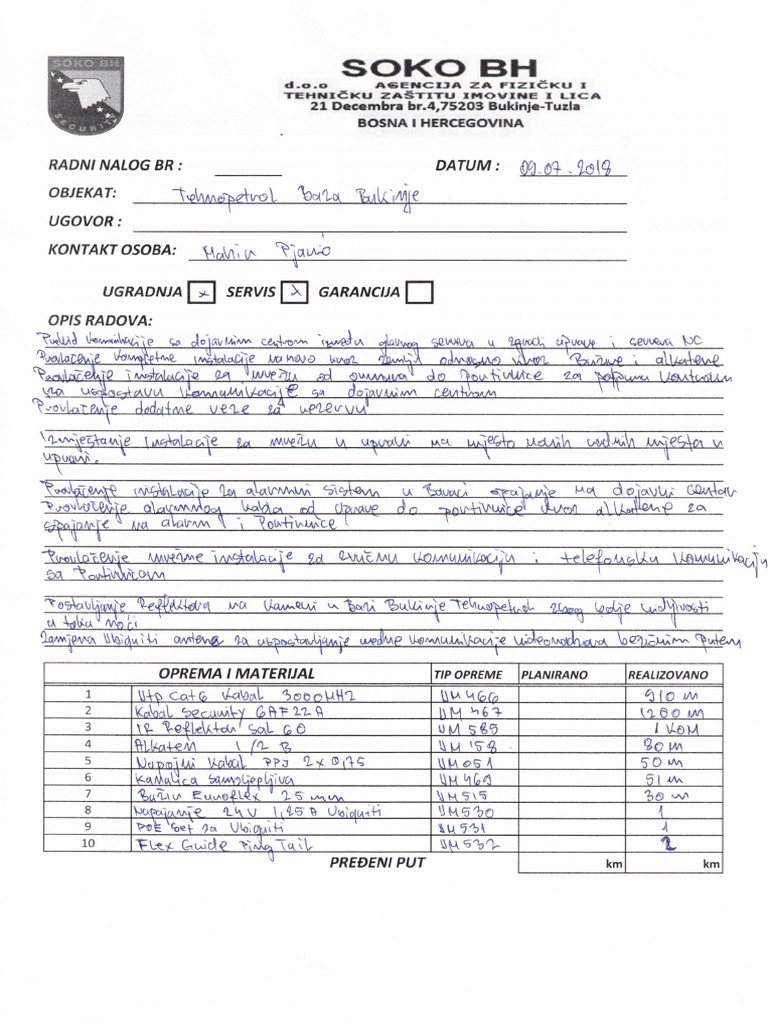 SOKO BH
SECURITY
SOKO BH
d.o.o AGENCIJA ZA FIZIČKU I
TEHNIČKU ZAŠTITU IMOVINE I LICA
21 Decembra br.4,75203 Bukinje-Tuzla
BOSNA I HERCEGOVINA
RADNI NALOG BR : DATUM : 09.07.2018
OBJEKAT: Tehnopetrol Baza Bukinje
UGOVOR :
KONTAKT OSOBA: Pjanić
UGRADNJA x SERVIS x GARANCIJA
OPIS RADOVA:
Prekid komunikacije sa dojavnim centrom između glavnog servera u zgradi uprave i servera NC
Provlačenje kompletne instalacije na novo kroz zemlju odnosno kroz Bužire i alkatene
Provlačenje instalacije za mrežu od servera do Portirnice za potpunu kontrolu
za uspostavu komunikacije sa dojavnim centrom
Provlačenje dodatne veze za rezervu
Izmještanje instalacije za mrežu u upravi na mjesto radnih mjesta u
upravi.
Provlačenje instalacije za alarmni sistem u spajanje na dojavni centar
Provlačenje alarmnog kabla od Uprave do portirnice kroz alkatene za
spajanje na alarm i Portirnice
Provlačenje mrežne instalacije za zvučnu komunikaciju i telefonsku komunikaciju
sa Portirnicom
Postavljanje Reflektora na kameri u Bazi Bukinje Tehnopetrol zbog bolje vidljivosti
u toku noći
Zamjena Ubiquiti antena za uspostavljanje mrežne komunikacije videonadzora bežičnim putem
OPREMA I MATERIJAL TIP OPREME PLANIRANO REALIZOVANO
1 Utp Cat6 Kabal 3000MHz UM 466 910 m
2 Kabal Security 6AF22A UM 467 1200 m
3 IR Reflektor Sal 60 UM 585 1 KOM
4 Alkaten 1/2 B UM 158 80 m
5 Napojni Kabal PPJ 2x0,75 UM 051 50 m
6 Kanalica samoljepljiva UM 469 51 m
7 Bužir Euroflex 25 mm UM 515 30 m
8 Napajanje 24V 1,25A Ubiquiti UM530 1
9 POE Set za Ubiquiti UM531 1
10 Flex Guide Ping Tail UM 532 2
PREĐENI PUT km km